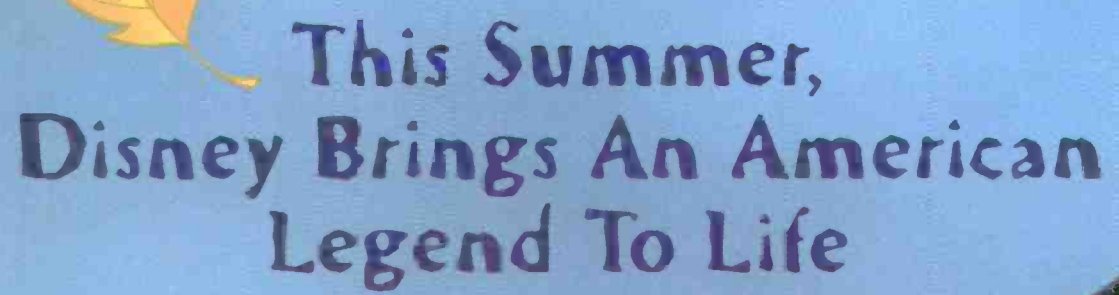 This Summer,
Disney Brings An American
Legend To Life